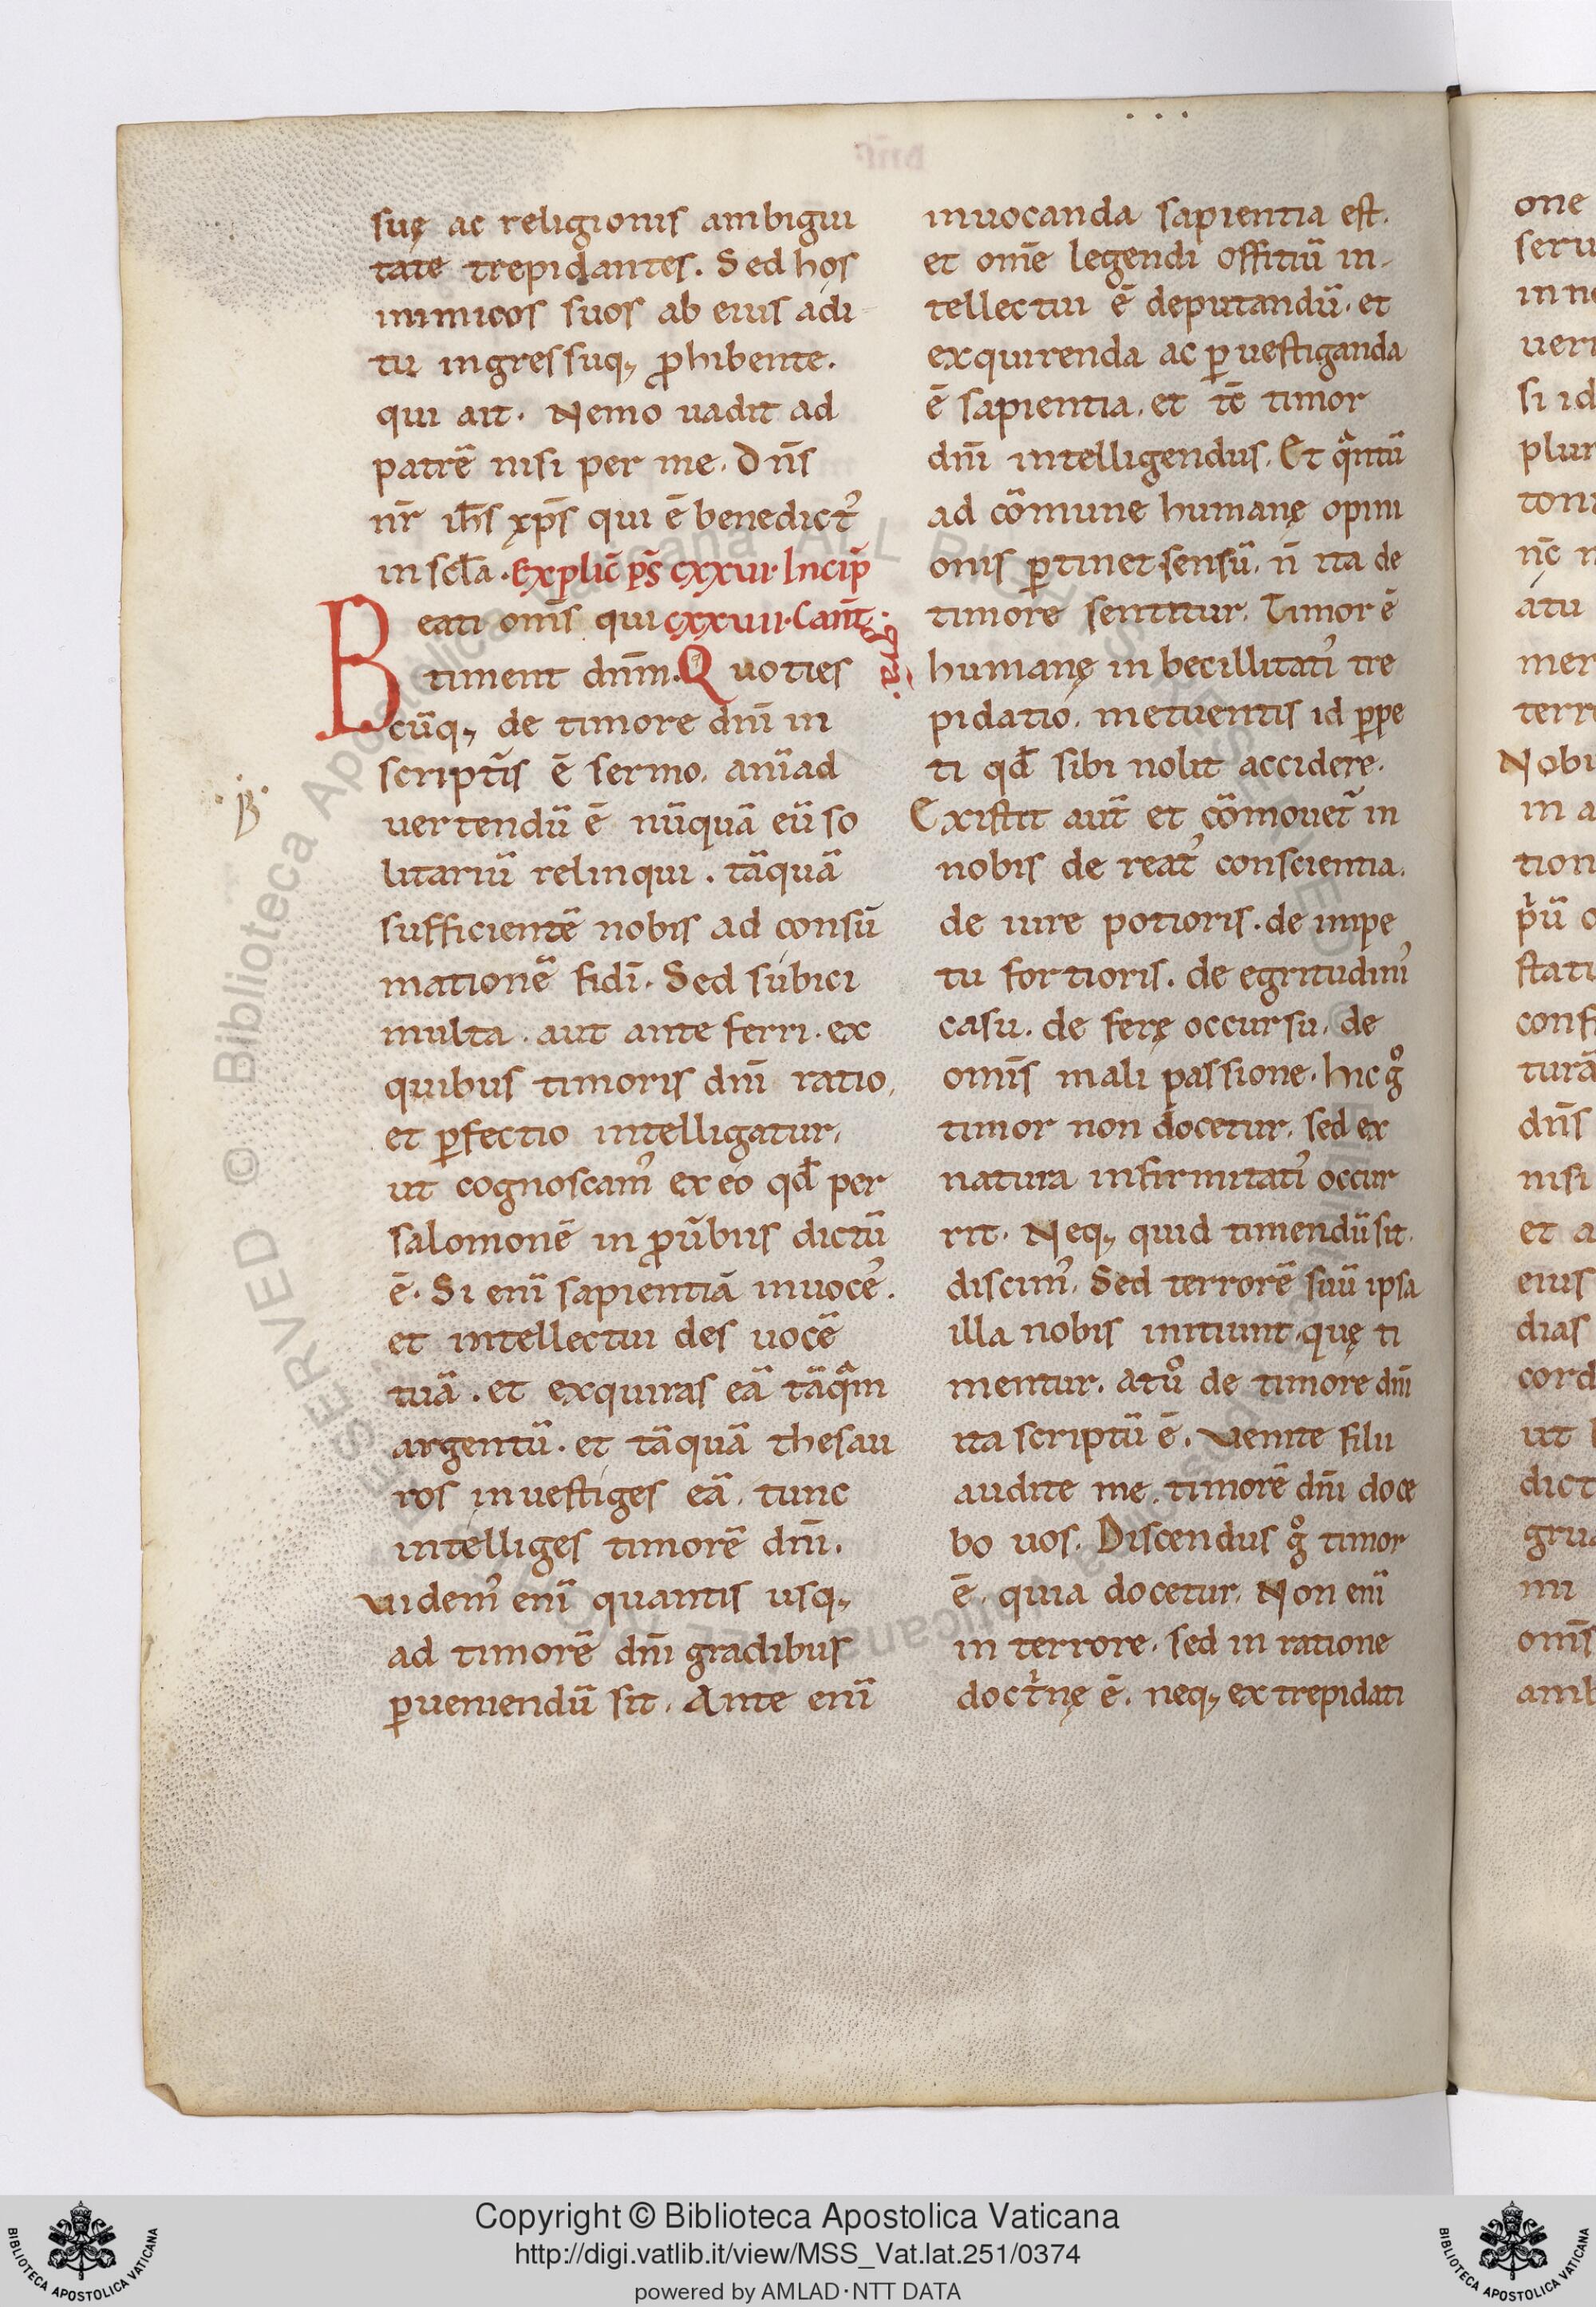 suę ac religionis ambigui
tate trepidantes. Sed hos
inimicos suos ab eius adi
tu ingressuq; ꝓhibente.
qui ait. Nemo uadit ad
patrē nisi per me. Dn̄s
nr̄ ih̄s xp̄s qui ē benedict᾿
in scl̄a. Explic̄ ps̄ cxxvi. Incip̄
Beati om̄s qui cxxvii. Cant̄. gra.
timent dn̄m. Quoties
cūq; de timore dn̄i in
script̄is ē sermo. anīad
uertendū ē nūquā eū so
litariū relinqui. tāquā
sufficientē nobis ad consū
mationē fidī. Sed subici
multa. aut ante ferri. ex
quibus timoris dn̄i ratio.
et ꝑfectio intelligatur.
ut cognoscam᾿ ex eo qd̄ per
salomonē in ꝓūbiis dictū
ē. Si enī sapientiā inuoce᾿.
et intellectui des uocē
tuā. et exquiras eā tāqᵃm
argentū. et tāquā thesau
ros inuestiges eā. tunc
intelliges timorē dn̄i.
Videm᾿ enī quantis usq;
ad timorē dn̄i gradibus
ꝑueniendū sit. Ante enī
inuocanda sapientia est.
et om̄e legendi offitiū in-
tellectui ē deputandū. et
exquirenda ac ꝑuestiganda
ē sapientia. et tc̄ timor
dn̄i intelligendus. Et qᵃntū
ad cōmune humanę opini
onis ꝑtinet sensū. n̄ ita de
timore sentitur. Timor ē
humanę inbecillitati᾿ tre
pidatio. metuentis id ꝑpe
ti qd̄ sibi nolit accidere.
Existit aut̄ et cōmouet̄ in
nobis de reat᾿ conscientia.
de iure potioris. de impe
tu fortioris. de egritudini᾿
casu. de ferę occursu. de
om̄is mali passione. hic gͦ
timor non docetur. sed ex
natura infirmitati᾿ occur
rit. Neq; quid timendū sit.
discim᾿. Sed terrorē suū ipsa
illa nobis initiunt. quę ti
mentur. At uͦ de timore dn̄i
ita scriptū ē. Venite filii
audite me. timorē dn̄i doce
bo uos. Discendus gͦ timor
ē. quia docetur. Non enī
in terrore. sed in ratione
doctⁱnę ē. neq; ex trepidati
one
Nobi
in a
tion
dn̄s
nisi
et a
eius
dias
cord
ut
dict
om̄s
amb
Copyright © Biblioteca Apostolica Vaticana
http://digi.vatlib.it/view/MSS_Vat.lat.251/0374
powered by AMLAD·NTT DATA
BIBLIOTECA APOSTOLICA VATICANA
BIBLIOTECA APOSTOLICA VATICANA